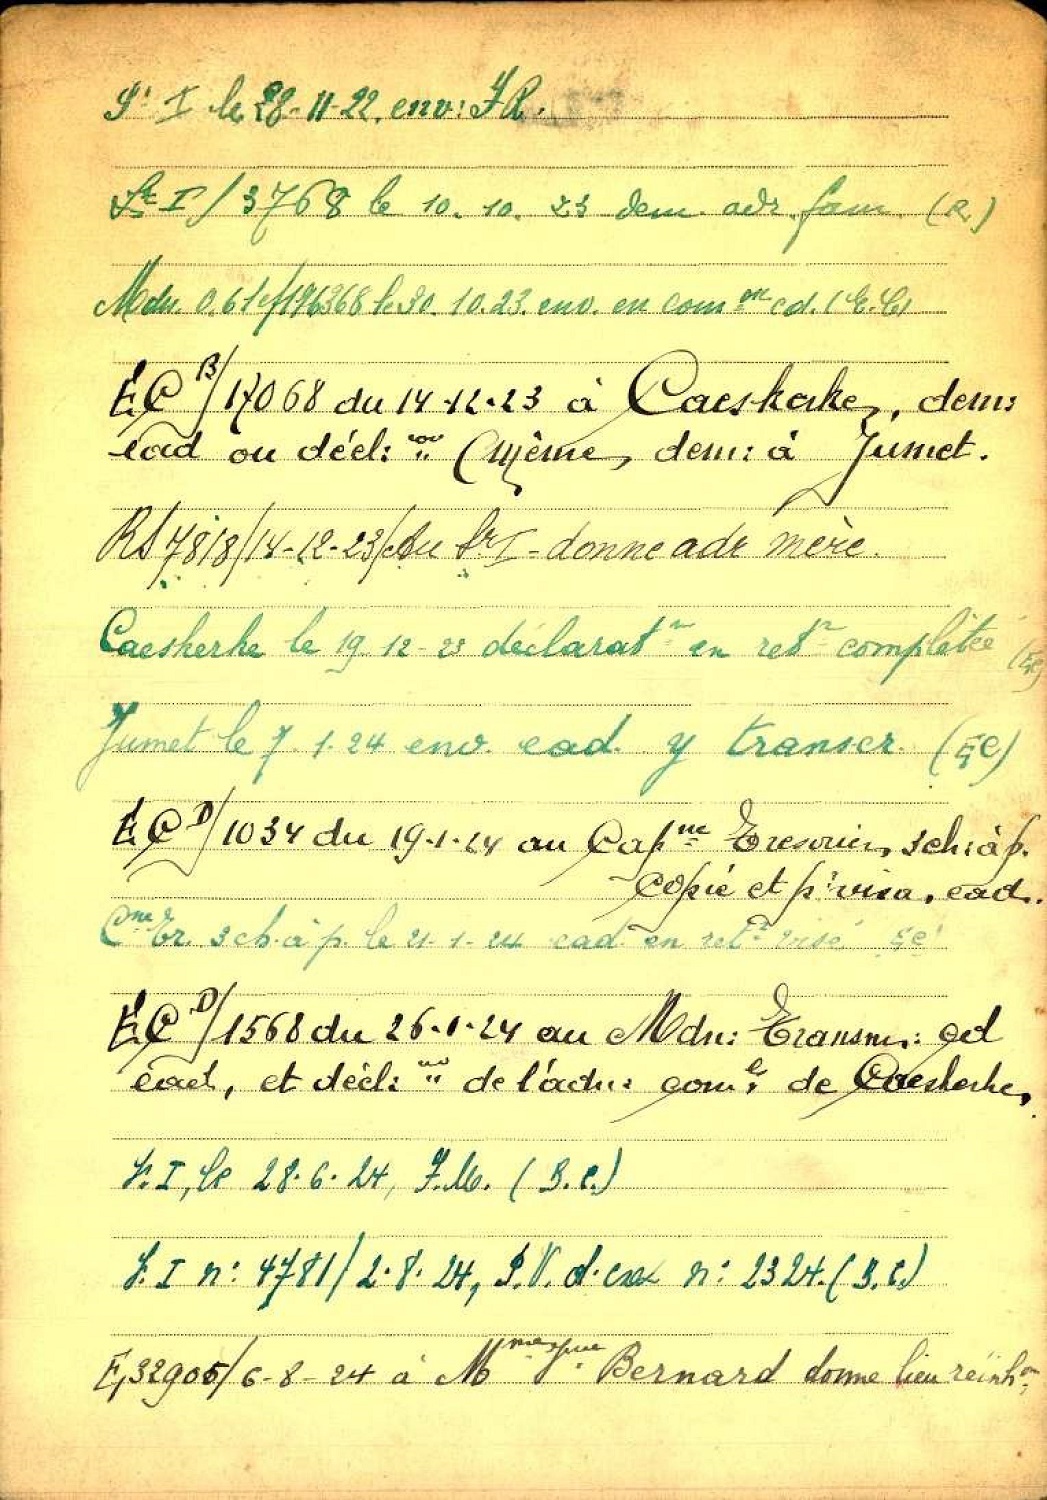 Sr I le 28-11-22. env: F.R.
Sr I / 3768 le 10.10.23 dem. adr. fam. (R.)
Mdn. 0.61 le 30.10.23. env. en com on cd. (E.C)
E.C B/17068 du 14-12-23 à Caeskerke, dem:
cad ou décl: (même dem: à Jumet.
RS/7818/14-12-23/du Sr I - donne adr mère.
Caeskerke le 19-12-23 déclaratn en retr complétée (EC)
Jumet le 7.1.24 env. cad. y transcr. (EC)
E.C D/1034 du 19-1-24 au Capne Trésorier, 3ch: à p.
copié et pr visa, cad.
Cne Tr. 3ch. à p. le 21-1-24 cad en retr visé EC
E.C D/1568 du 26-1-24 au Mdn: Transm:
cad, et décl: de l'adm: com: de Caeskerke,
S.I, le 28.6.24, F.M. (B.C.)
S.I n: 4781/2.8.24, P.V. d'ex n: 2324. (B.C.)
E,32905/6-8-24 à Mme Bernard donne lieu réinhon